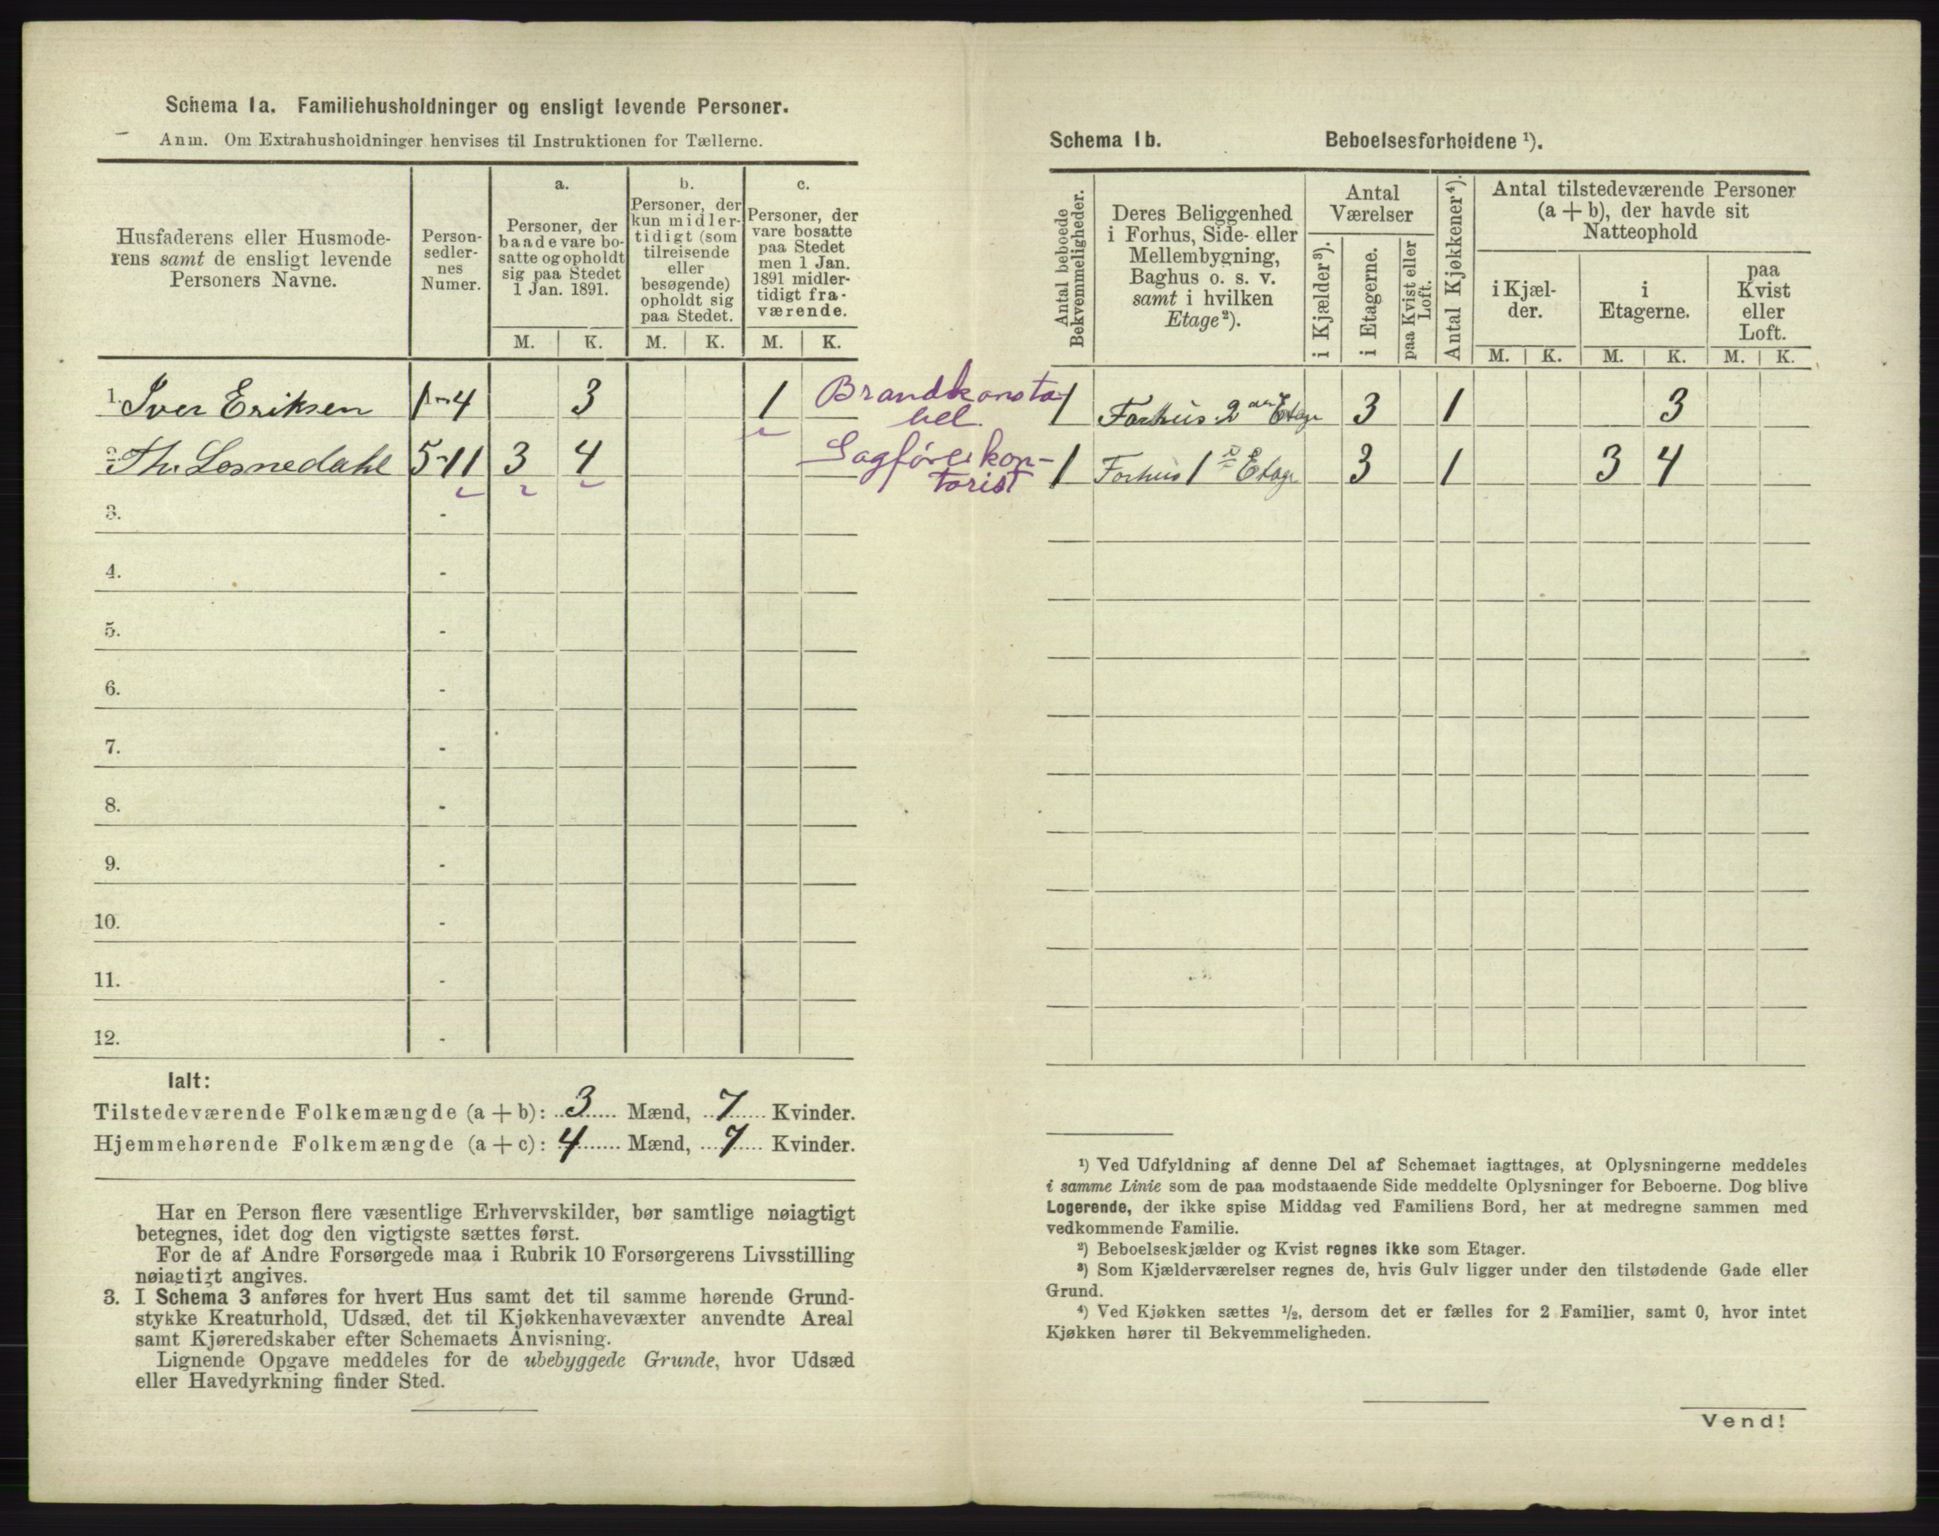 Schema 1a. Familiehusholdninger og ensligt levende Personer.
Anm. Om Extrahusholdninger henvises til Instruktionen for Tællerne.
Husfaderens eller Husmode-
rens samt de ensligt levende
Personers Navne.
Person-
sedler-
nes
Numer.
a.
Personer, der
baade vare bo-
satte og opholdt
sig paa Stedet
1 Jan. 1891.
b.
Personer, der
kun midler-
tidigt (som
tilreisende
eller
besøgende)
opholdt sig
paa Stedet.
c.
Personer, der
vare bosatte
paa Stedet
men 1 Jan.
1891 midler-
tidigt fra-
værende.
M. K. M. K. M. K.
1. Iver Eriksen 1-4 3 1 Brandkonsta-
bel.
2. Th. Losnedahl 5-11 3 4 Sagførerkon-
torist
3. -
4. -
5. -
6. -
7. -
8. -
9. -
10. -
11. -
12. -
Ialt:
Tilstedeværende Folkemængde (a + b): 3 Mænd, 7 Kvinder.
Hjemmehørende Folkemængde (a + c): 4 Mænd, 7 Kvinder.
Har en Person flere væsentlige Erhvervskilder, bør samtlige nøiagtigt
betegnes, idet dog den vigtigste sættes først.
For de af Andre Forsørgede maa i Rubrik 10 Forsørgerens Livsstilling
nøiagtigt angives.
3. I Schema 3 anføres for hvert Hus samt det til samme hørende Grund-
stykke Kreaturhold, Udsæd, det til Kjøkkenhavevæxter anvendte Areal
samt Kjøreredskaber efter Schemaets Anvisning.
Lignende Opgave meddeles for de ubebyggede Grunde, hvor Udsæd
eller Havedyrkning finder Sted.
Schema 1b. Beboelsesforholdene ¹).
Antal beboede
Bekvemmeligheder.
Deres Beliggenhed
i Forhus, Side- eller
Mellembygning,
Baghus o. s. v.
samt i hvilken
Etage²).
Antal
Værelser
i Kjælder³).
i Etagerne.
paa Kvist eller
Loft.
Antal Kjøkkener⁴).
Antal tilstedeværende Personer
(a + b), der havde sit
Natteophold
i Kjæl-
der.
i
Etagerne.
paa
Kvist
eller
Loft.
M. K. M. K. M. K.
1 Forhus 2 den Etage 3 1 3
1 Forhus 1 ste Etage 3 1 3 4
¹) Ved Udfyldning af denne Del af Schemaet iagttages, at Oplysningerne meddeles
i samme Linie som de paa modstaaende Side meddelte Oplysninger for Beboerne. Dog blive
Logerende, der ikke spise Middag ved Familiens Bord, her at medregne sammen med
vedkommende Familie.
²) Beboelseskjælder og Kvist regnes ikke som Etager.
³) Som Kjælderværelser regnes de, hvis Gulv ligger under den tilstødende Gade eller
Grund.
⁴) Ved Kjøkken sættes ½, dersom det er fælles for 2 Familier, samt 0, hvor intet
Kjøkken hører til Bekvemmeligheden.
Vend!